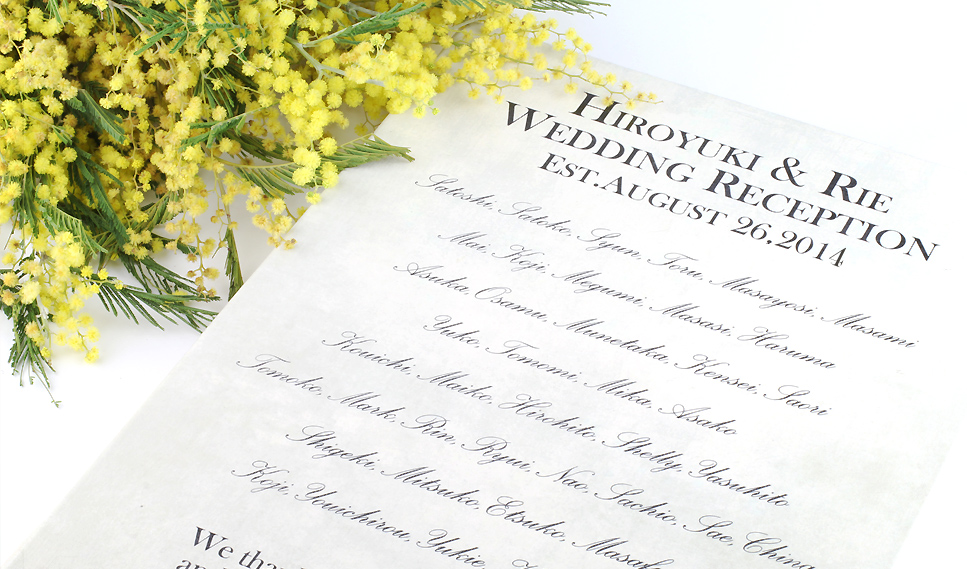 HIROYUKI & RIE
WEDDING RECEPTION
EST.AUGUST 26,2014
Satoshi, Satoko, Syun, Toru, Masayosi, Masami
Mai, Koji, Megumi, Masasi, Haruma
Asuka, Osamu, Munetaka, Kensei, Saori
Yuko, Tomomi, Mika, Asako
Kouichi, Maiko, Hirohito, Shelly, Yasuhito
Tomoko, Mark, Rin, Ryui, Nao, Sachio, Sae, China
Shigeki, Mitsuko, Etsuko,
Koji, Youichirou, Yukie,
We